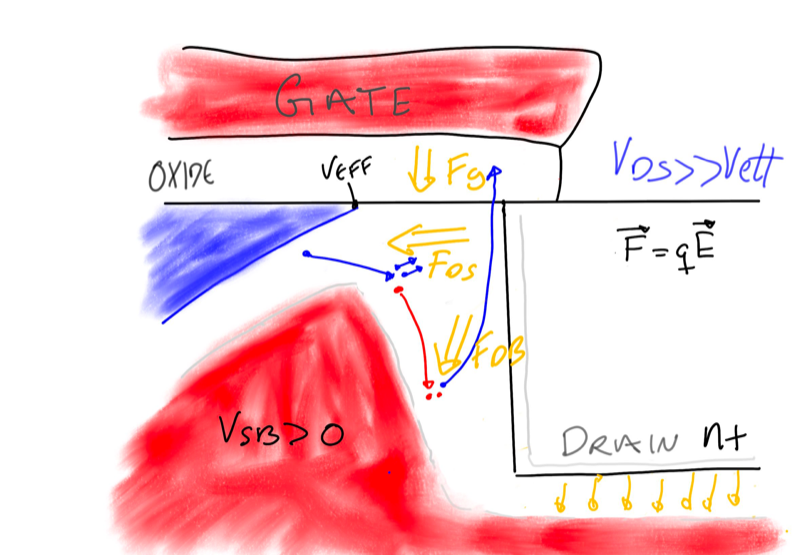 GATE
OXIDE
VEFF
Fg
VDS>>Veff
FDS
F = qE
FDB
VSB > 0
DRAIN n+